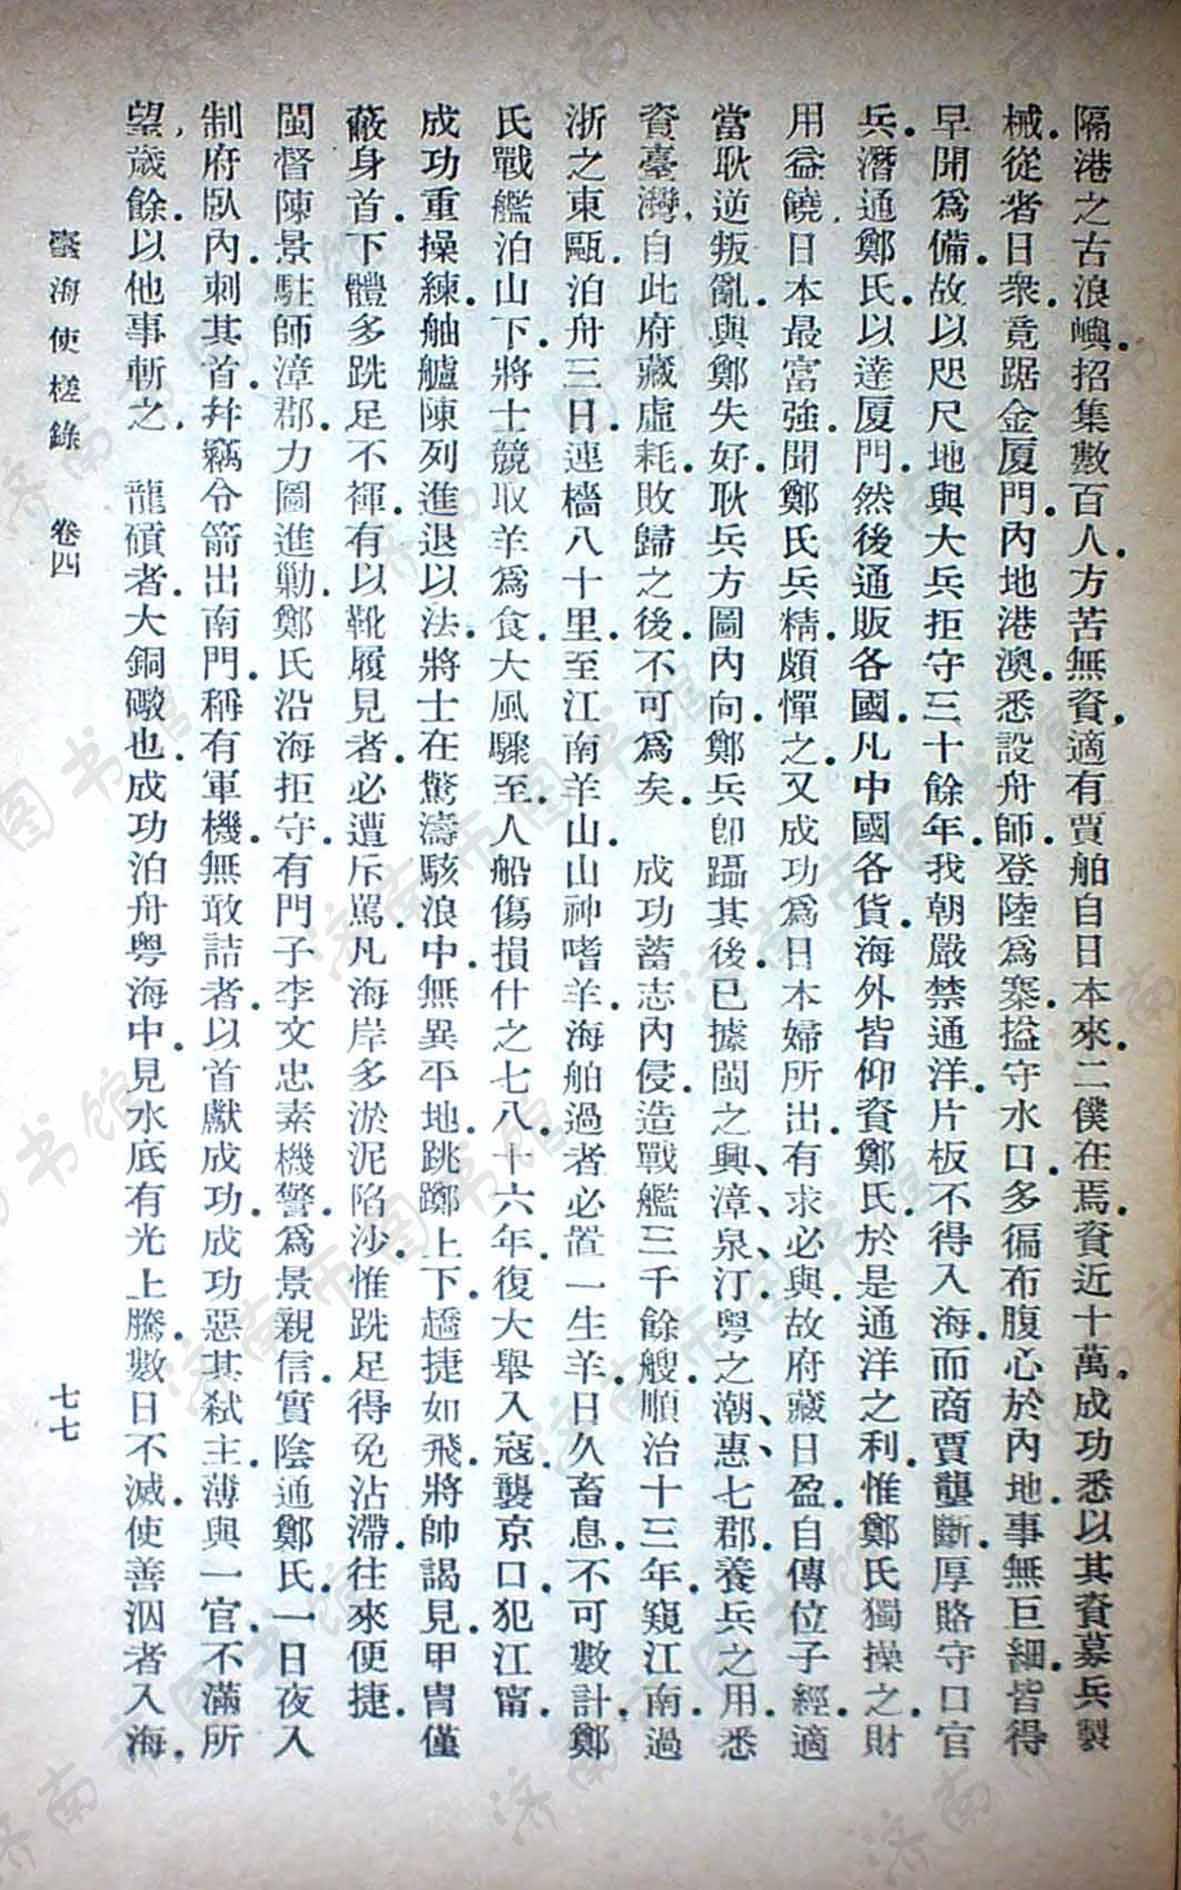 隔港之古浪嶼.招集數百人.方苦無資.適有賈舶自日本來.二僕在焉.資近十萬.成功悉以其資募兵製
械.從者日衆.竟踞金厦門.內地港澳.悉設舟師.登陸爲寨.搤守水口.多徧布腹心於內地.事無巨細.皆得
早聞爲備.故以咫尺地與大兵拒守三十餘年.我朝嚴禁通洋.片板不得入海.而商賈壟斷.厚賂守口官
兵.潛通鄭氏.以達厦門.然後通販各國.凡中國各貨.海外皆仰資鄭氏.於是通洋之利.惟鄭氏獨操之.財
用益饒.日本最富強.聞鄭氏兵精.頗憚之.又成功爲日本婦所出.有求必與.故府藏日盈.自傳位子經.適
當耿逆叛亂.與鄭失好.耿兵方圖內向.鄭兵卽躡其後.已據閩之興、漳、泉、汀.粤之潮、惠七郡.養兵之用.悉
資臺灣.自此府藏虛耗.敗歸之後.不可爲矣. 成功蓄志內侵.造戰艦三千餘艘.順治十三年.窺江南.過
浙之東甌.泊舟三日.連檣八十里.至江南羊山.山神嗜羊.海舶過者必置一生羊.日久畜息.不可數計.鄭
氏戰艦泊山下.將士競取羊爲食.大風驟至.人船傷損什之七八.十六年.復大舉入寇.襲京口.犯江甯.
成功重操練.舳艫陳列.進退以法.將士在驚濤駭浪中.無異平地.跳躑上下.趫捷如飛.將帥謁見.甲冑僅
蔽身首.下體多跣足不褌.有以靴履見者.必遭斥罵.凡海岸多淤泥陷沙.惟跣足得免沾滯.往來便捷.
閩督陳景駐師漳郡.力圖進勦.鄭氏沿海拒守.有門子李文忠.素機警.爲景親信.實陰通鄭氏.一日夜入
制府臥內.刺其首.幷竊令箭出南門.稱有軍機.無敢詰者.以首獻成功.成功惡其弒主.薄與一官.不滿所
望.歲餘.以他事斬之. 龍碽者.大銅礮也.成功泊舟粤海中.見水底有光上騰.數日不滅.使善泅者入海.
臺海使槎錄 卷四 七七